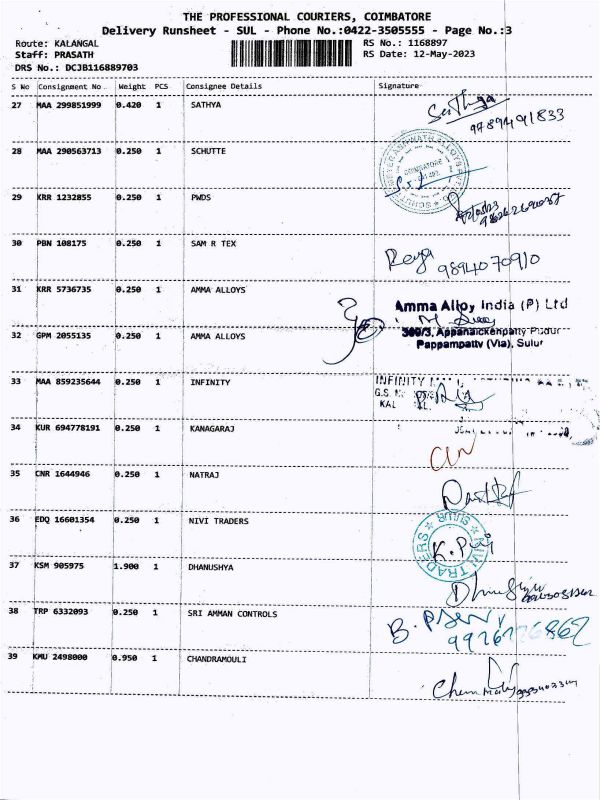 THE PROFESSIONAL COURIERS, COIMBATORE
Delivery Runsheet - SUL - Phone No.:0422-3505555 - Page No.:3
Route: KALANGAL RS No.: 1168897
Staff: PRASATH RS Date: 12-May-2023
DRS No.: DCJB116889703
S No Consignment No Weight PCS Consignee Details Signature
27 MAA 299851999 0.420 1 SATHYA
9789491833
28 MAA 290563713 0.250 1 SCHUTTE
COIMBATORE
29 KRR 1232855 0.250 1 PWDS
30 PBN 108175 0.250 1 SAM R TEX
9894070910
31 KRR 5736735 0.250 1 AMMA ALLOYS
Amma Alloy India (P) Ltd
32 GPM 2055135 0.250 1 AMMA ALLOYS
309/3, Appanaickenpatty Pudur
Pappampatty (Via), Sulur
33 MAA 859235644 0.250 1 INFINITY
INFINITY
G.S.
KAL
34 KUR 694778191 0.250 1 KANAGARAJ
35 CNR 1644946 0.250 1 NATRAJ
36 EDQ 16601354 0.250 1 NIVI TRADERS
NIVI TRADERS SULUR
37 KSM 905975 1.900 1 DHANUSHYA
38 TRP 6332093 0.250 1 SRI AMMAN CONTROLS
39 KMU 2498000 0.950 1 CHANDRAMOULI